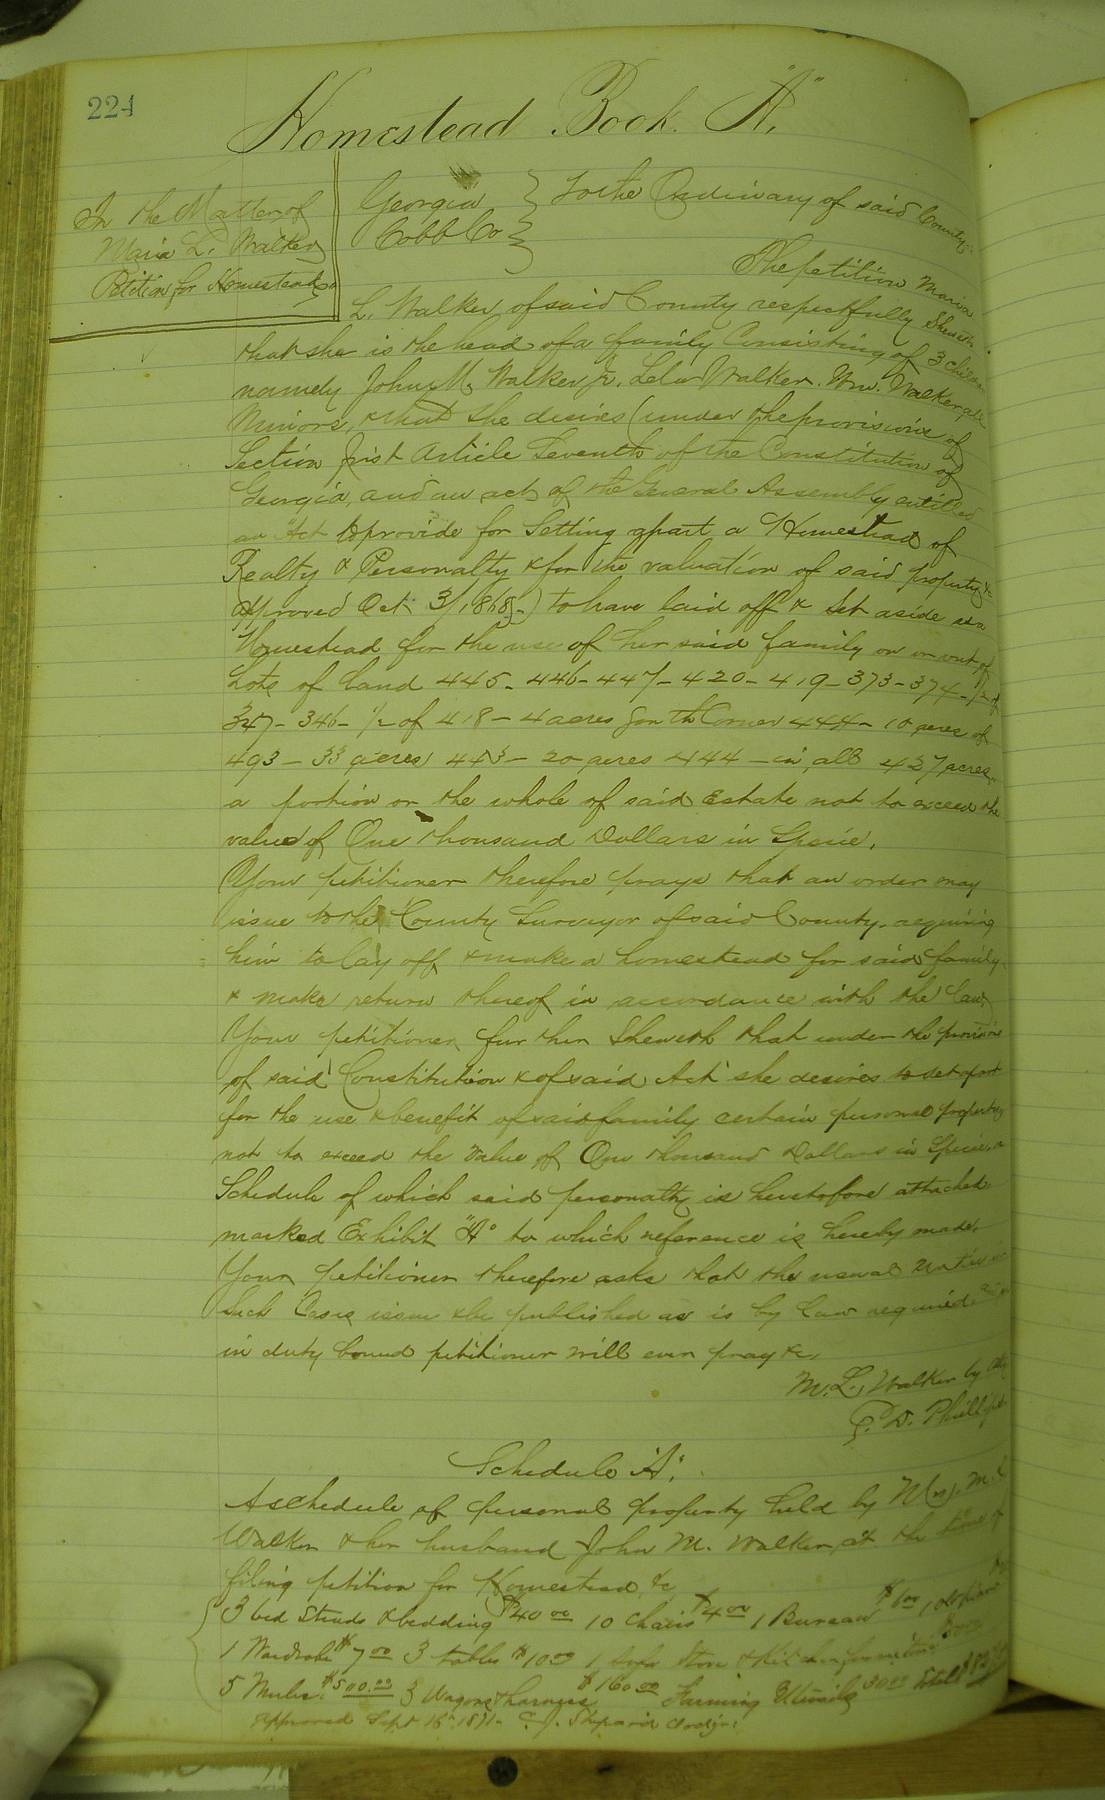 224
Homestead Book "A"
In the Matter of
Maria L. Walker
Petition for Homestead
Georgia
Cobb Co
To the Ordinary of said County.
The petition Maria
L. Walker, of said County respectfully Sheweth
that she is the head of a family Consisting of 3 children
namely John M. Walker Jr. Lela Walker. Wm. Walker all
Minors, & that she desires (under the provisions of
Section first Article Seventh of the Constitution of
Georgia, and an act of the General Assembly entitled
an "Act to provide for Setting apart a Homestead of
Realty & Personalty & for the valuation of said property &c
approved Oct. 3/, 1868,) to have laid off & set aside as a
Homestead for the use of her said family on or out of
Lots of land 445 - 446 - 447 - 420 - 419 - 373 - 374 - 1/2 of
347 - 346 - 1/2 of 418 - 4 acres South Corner 444 - 10 acres of
493 - 33 acres 443 - 20 acres 444 - in all 427 acres,
a portion or the whole of said Estate not to exceed the
value of One thousand Dollars in Specie.
Your petitioner therefore prays that an order may
issue to the County Surveyor of said County, requiring
him to lay off & make a homestead for said family
& make return thereof in accordance with the law.
Your petitioner further Sheweth that under the provisions
of said Constitution & of said Act she desires to set apart
for the use & benefit of said family certain personal property
not to exceed the value of One thousand Dollars in Specie, a
Schedule of which said personalty is heretofore attached
marked Exhibit "A" to which reference is hereby made.
Your petitioner therefore asks that the usual Notice in
Such Cases issue & be published as is by law required. And as
in duty bound petitioner will ever pray &c.
M. L. Walker by Atty
P. D. Phillips
Schedule "A."
A schedule of personal property held by Mrs. M. L.
Walker & her husband John M. Walker, at the time of
filing petition for Homestead, &c
3 bed Steads & bedding $40 00 10 Chairs $4 00 1 Bureau $6 00 1
1 Wardrobe $7 00 3 tables $10 00 1 Stove & Kitchen furniture
5 Mules $500.00 3 Wagons & harness $160 00 Farming Utensils 30 00 total
Approved Sept 16th 1871 - C. J. Shepard Ordy.